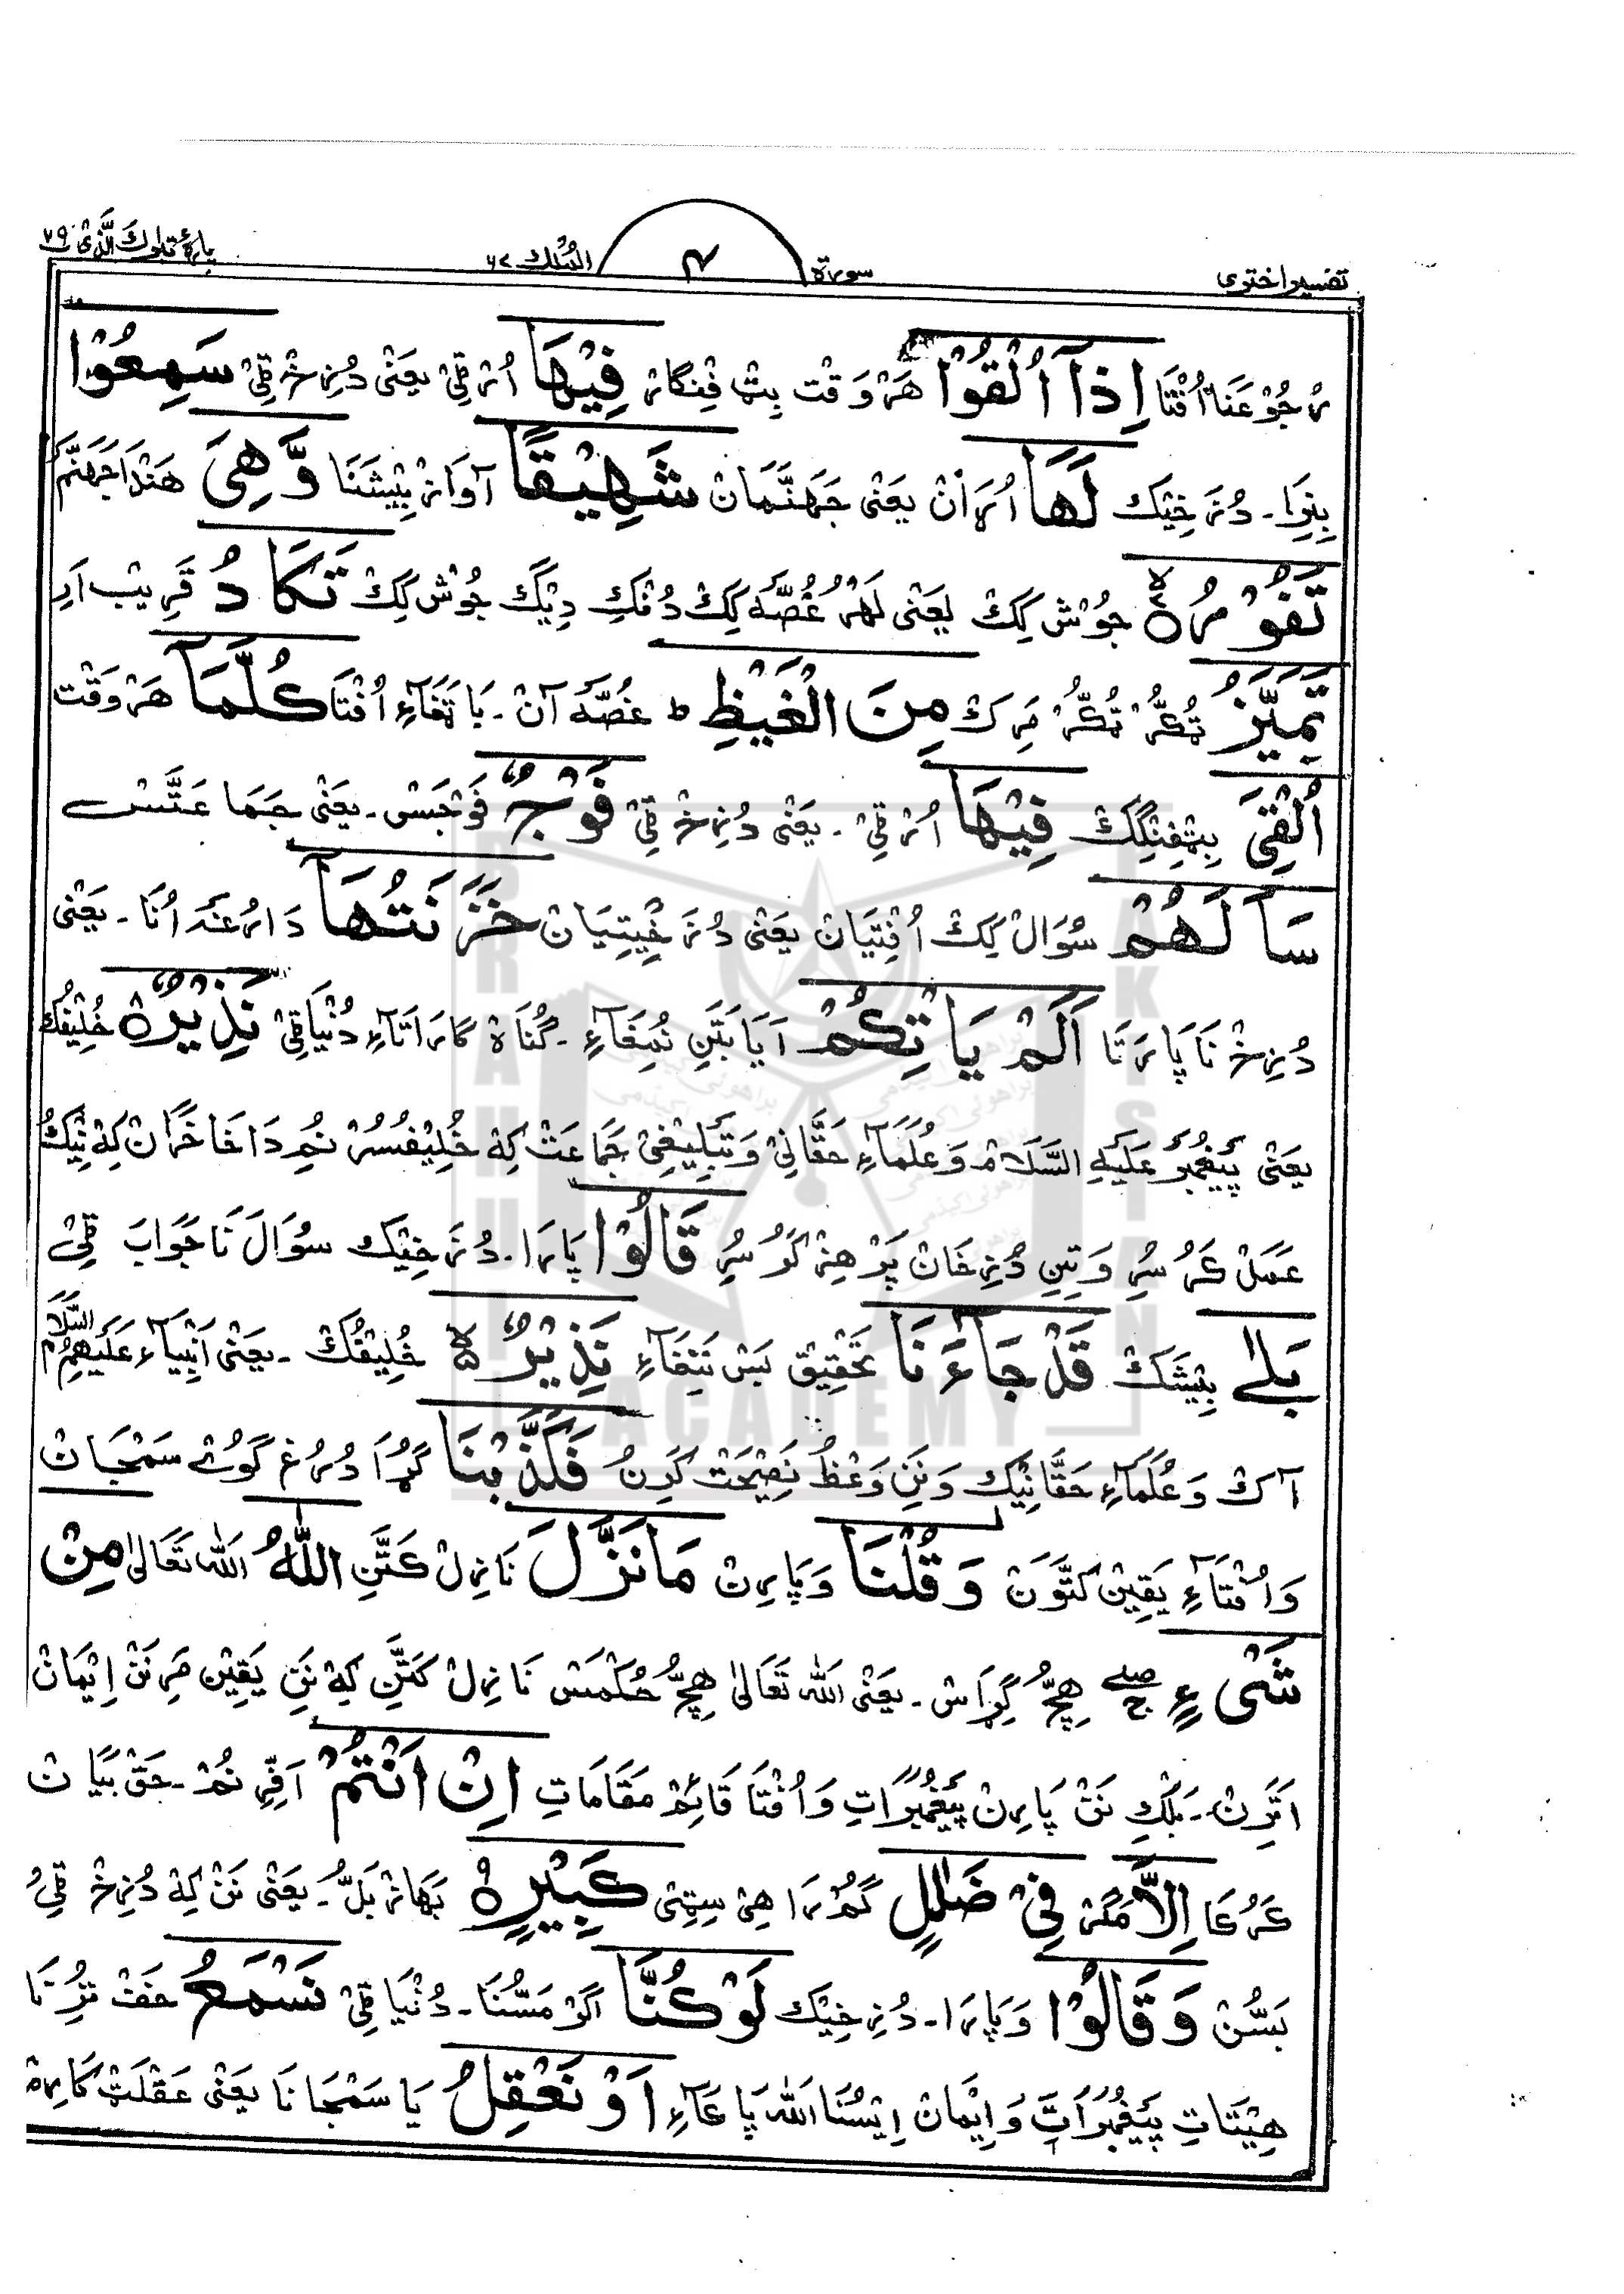 تفسیر اختری سورۃ ۴ الملك ۶۷ پارۂ تبارك الذی ۲۹
رُجُوْعَنَا اُفْتَا اِذَآ اُلْقُوْا هَرْوَقْت بِٹْ فِنْگارْ فِیْهَا اُرْ ٹِیْ یَعْنٰی دُزِخْ ٹِیْ سَمِعُوْا
بِنِرَا۔ دُزَخِیْك لَهَا اُرَاْنْ یَعْنٰی جَهَنَّمَانْ شَهِیْقًا آوَازْ بِیْشَنَا وَّهِیَ هَنْدَا جَهَنَّم
تَفُوْرُ ۝ جُوْش كِكْ یَعْنٰی لَهْرْ غُصَّه كِكْ دُنْكِ دِیْگْ جُوْش كِكْ تَكَادُ قَرِیْب اَرِ
تَمَیَّزُ ٹُكُّرْ ٹُكُّرْ مَرِكْ مِنَ الْغَیْظِ ط غُصَّه آنْ۔ بَا تَغَآءِ اُفْتَا كُلَّمَآ هَرْ وَقْت
اُلْقِیَ بِٹْفِنْگِكْ فِیْهَا اُرْ ٹِیْ۔ یَعْنٰی دُزِخْ ٹِیْ فَوْجٌ فَوْجَسْ۔ یَعْنٰی جَمَاعَتَّسْ
سَاَلَهُمْ سُوَالْ كِكْ اُفْتِیَانْ یَعْنٰی دُزَخِیْتِیَانْ خَزَنَتُهَآ دَارُغَه اُنَا۔ یَعْنٰی
دُزِخْ نَا پَارَتَا اَلَمْ یَاْتِكُمْ آیَا بَتَّنِ نُمِغَآءِ۔ گُنَاه گَارَاتَآءِ دُنْیَا ٹِیْ نَذِیْرٌ ۝ خُلِیْفُك
یَعْنٰی پَیْغَمْبَرْ عَلَیْهِ السَّلَامْ وَعُلَمَآءِ حَقَّانِیْ وَتَبْلِیْغِیْ جَمَاعَتْ كِه خُلِیْفُسُرْ نُمِ دَا خَاخَرَانْ كِه نِیْكُ
عَمَلْ كَرُسُرِ وَتِنِ دُزِخَانْ پَرْهِزْ كَرُسُرِ قَالُوْا پَارَا۔ دُزَخِیْك سُوَالَ نَا جَوَابَ ٹِیْ
بَلٰی بِیْشَكْ قَدْ جَآءَنَا تَحْقِیْق بَسْ نَنِغَآءِ نَذِیْرٌ ۝ خُلِیْفُكْ۔ یَعْنٰی اَنْبِیَآء عَلَیْهِمُ السَّلَام
آكْ وَعُلَمَآءِ حَقَّانِیْك وَنَنِ وَعْظُ نَصِیْحَتْ كَرِنُ فَكَذَّبْنَا گُڑَا دُرُغ گَوْئے سَمْجَانْ
وَاُفْتَآءِ یَقِیْن كَتَّوَنْ وَقُلْنَا وَپَارِنْ مَا نَزَّلَ نَازِلْ كَتَّنِ اللّٰهُ اللّٰه تَعَالٰی مِنْ
شَیْءٍ صلے ج هِچُّ گِرَاسْ۔ یَعْنٰی اَللّٰه تَعَالٰی هِچُّ حُكْمَسْ نَازِلْ كَتَّنِ كِه نَنِ یَقِیْن مَرِنَنْ اِیْمَانْ
اَتِّرِنْ۔ بَلْكِ نَنْ پَارِنْ پَیْغَمْبَرَاتِ وَاُفْتَا قَائِمْ مَقَامَاتِ اِنْ اَنْتُمْ اَفِّرِ نُمْ۔ حَقْ بَیَانْ
كَرُكَا اِلَّا مَگَرْ فِیْ ضَلٰلٍ گُمْرَاهِیْ سِتِیْ كَبِیْرٍ ۝ بَهَازْ بَلُّ۔ یَعْنٰی نَنْ كِه دُزِخْ ٹِیْ
بَسُّنْ وَقَالُوْا وَپَارَا۔ دُزِخِیْك لَوْ كُنَّا اَگَرْ مَسُّنَا۔ دُنْیَا ٹِیْ نَسْمَعُ خَفْتْ تَرُنَا
هِیْتَاتِ پَیْغَمْبَرَاتِ وَاِیْمَانْ اِیْسُنَا اَللّٰه پَاعَآءِ اَوْ نَعْقِلُ یَا سَمْجَانَا یَعْنٰی عَقْلَتْ كَارِم